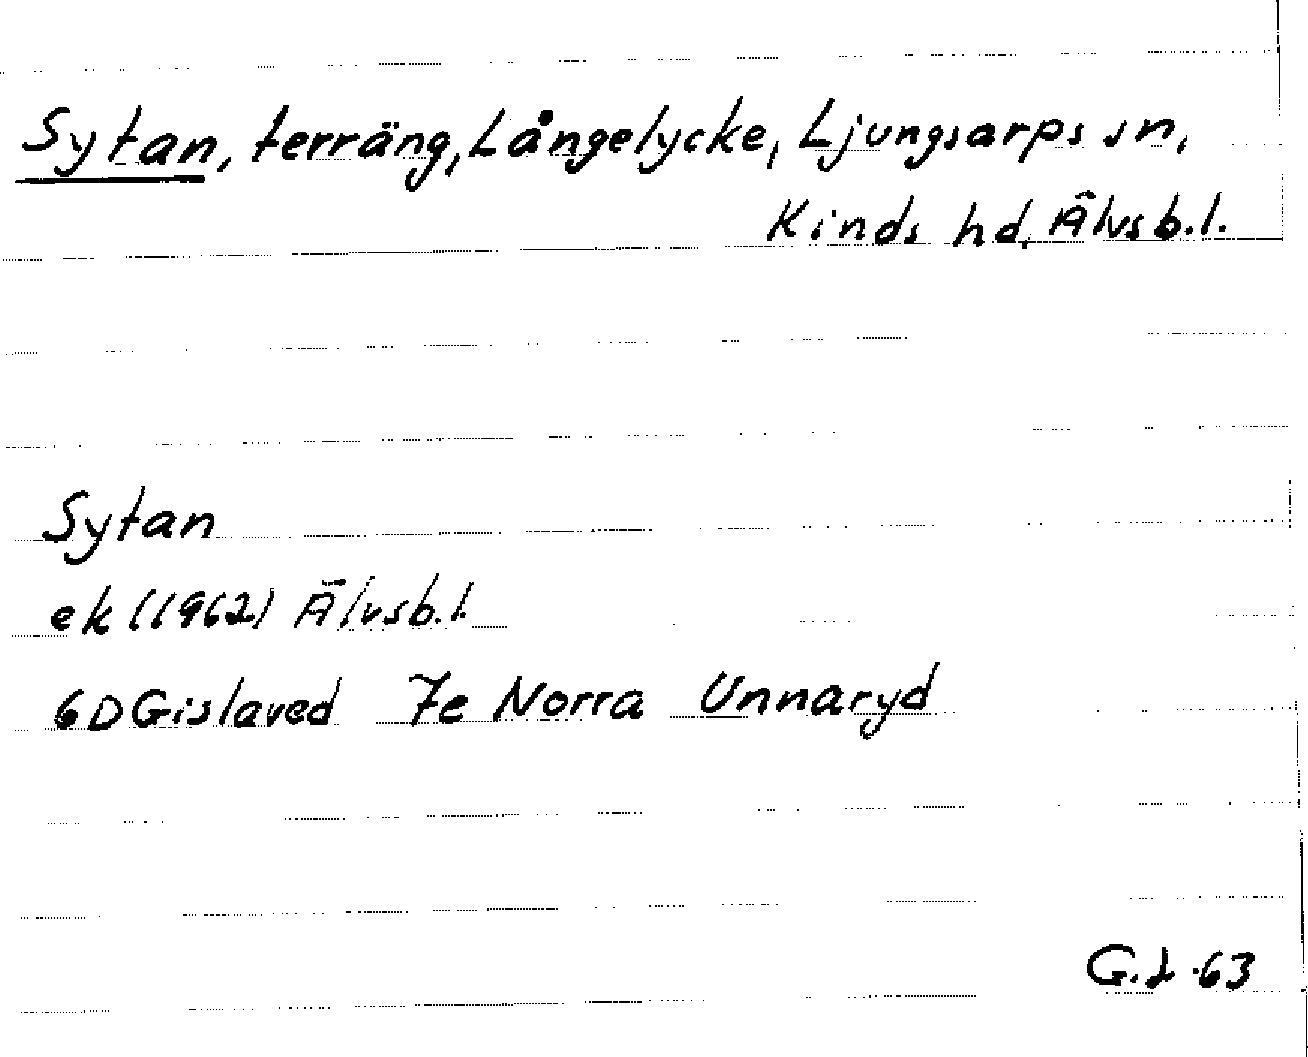 Sytan, terräng, Långelycke, Ljungsarps sn,
Kinds hd, Älvsb.l.
Sytan
ek (1962) Älvsb.l.
6D Gislaved 7e Norra Unnaryd
G.L. 63